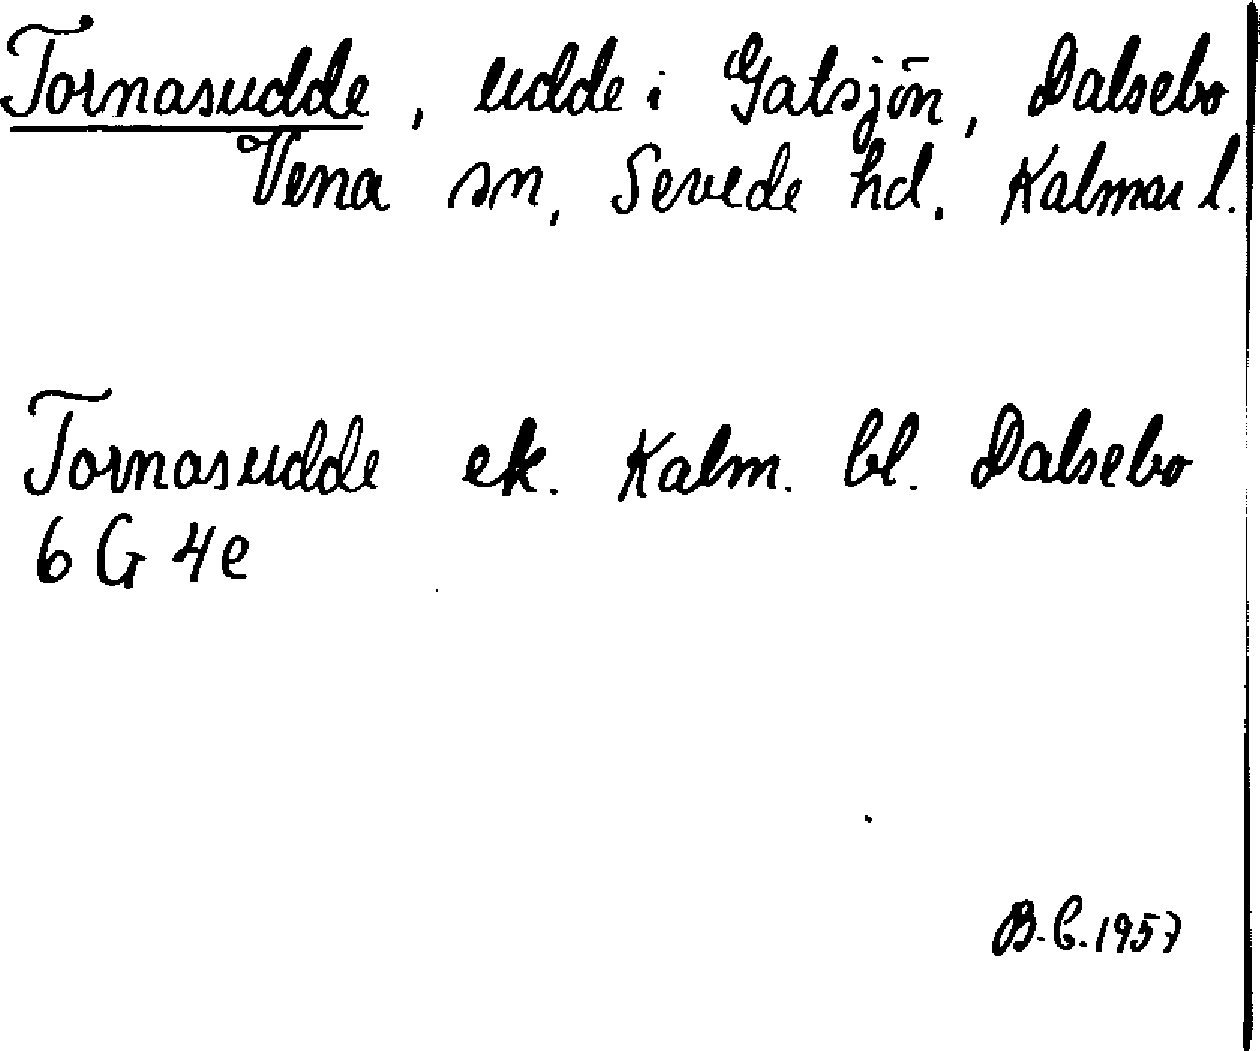 Tornasudde, udde i Gatsjön, Dalsebo
Vena sn, Sevede hd. Kalmar l.
Tornasudde ek. Kalm. bl. Dalsebo
6 G 4e
B.C. 1957